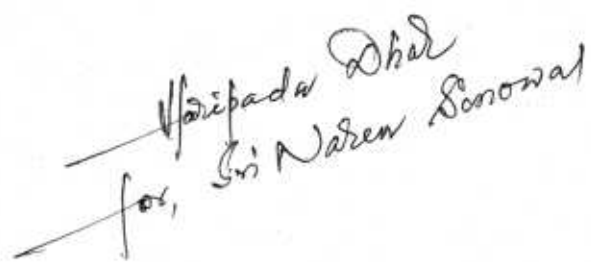 Haripada Dhar
for, Sri Naren Sonowal